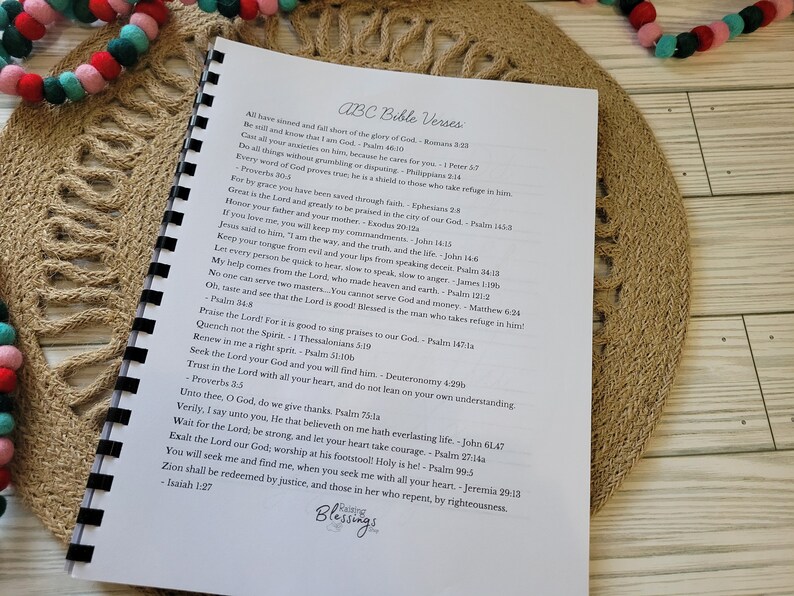 ABC Bible Verses:
All have sinned and fall short of the glory of God. - Romans 3:23
Be still and know that I am God. - Psalm 46:10
Cast all your anxieties on him, because he cares for you. - 1 Peter 5:7
Do all things without grumbling or disputing. - Philippians 2:14
Every word of God proves true; he is a shield to those who take refuge in him.
- Proverbs 30:5
For by grace you have been saved through faith. - Ephesians 2:8
Great is the Lord and greatly to be praised in the city of our God. - Psalm 145:3
Honor your father and your mother. - Exodus 20:12a
If you love me, you will keep my commandments. - John 14:15
Jesus said to him, "I am the way, and the truth, and the life. - John 14:6
Keep your tongue from evil and your lips from speaking deceit. Psalm 34:13
Let every person be quick to hear, slow to speak, slow to anger. - James 1:19b
My help comes from the Lord, who made heaven and earth. - Psalm 121:2
No one can serve two masters....You cannot serve God and money. - Matthew 6:24
Oh, taste and see that the Lord is good! Blessed is the man who takes refuge in him!
- Psalm 34:8
Praise the Lord! For it is good to sing praises to our God. - Psalm 147:1a
Quench not the Spirit. - 1 Thessalonians 5:19
Renew in me a right sprit. - Psalm 51:10b
Seek the Lord your God and you will find him. - Deuteronomy 4:29b
Trust in the Lord with all your heart, and do not lean on your own understanding.
- Proverbs 3:5
Unto thee, O God, do we give thanks. Psalm 75:1a
Verily, I say unto you, He that believeth on me hath everlasting life. - John 6L47
Wait for the Lord; be strong, and let your heart take courage. - Psalm 27:14a
Exalt the Lord our God; worship at his footstool! Holy is he! - Psalm 99:5
You will seek me and find me, when you seek me with all your heart. - Jeremia 29:13
Zion shall be redeemed by justice, and those in her who repent, by righteousness.
- Isaiah 1:27
Raising
Blessings
Shop